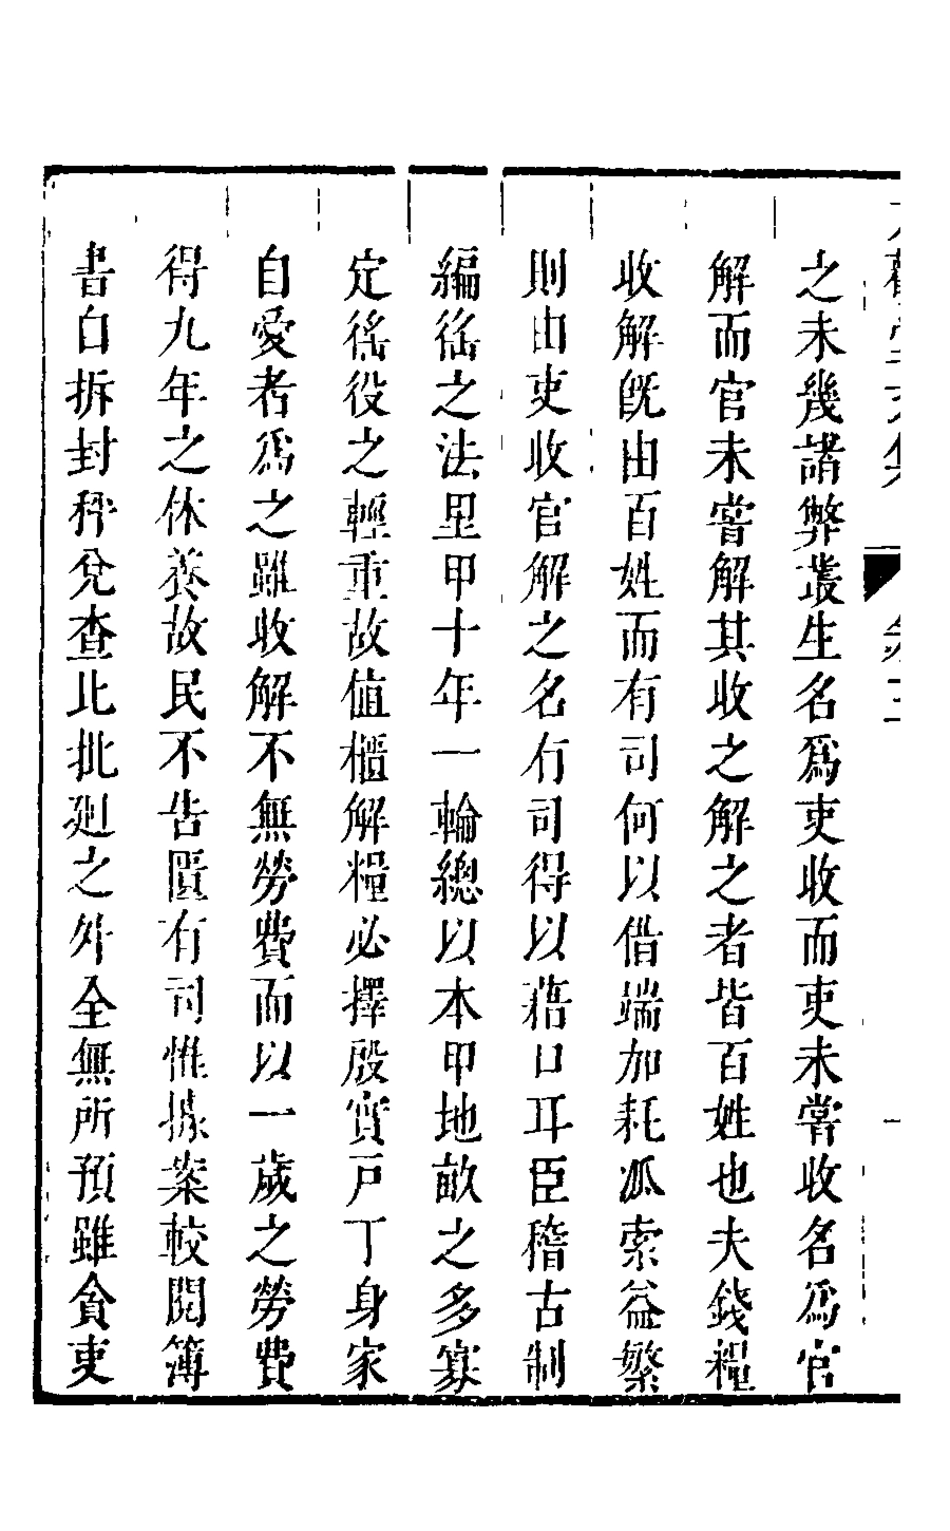 之未幾諸弊叢生名爲吏收而吏未嘗收名爲官
解而官未嘗解其收之解之者皆百姓也夫錢糧
收解旣由百姓而有司何以借端加耗派索益繁
則由吏收官解之名有司得以藉口耳臣稽古制
編徭之法里甲十年一輪總以本甲地畝之多寡
定徭役之輕重故值櫃解糧必擇殷實戸丁身家
自愛者爲之雖收解不無勞費而以一歲之勞費
得九年之休養故民不告匱有司惟據案較閱簿
書白拆封秤兌查比批廻之外全無所預雖貪吏